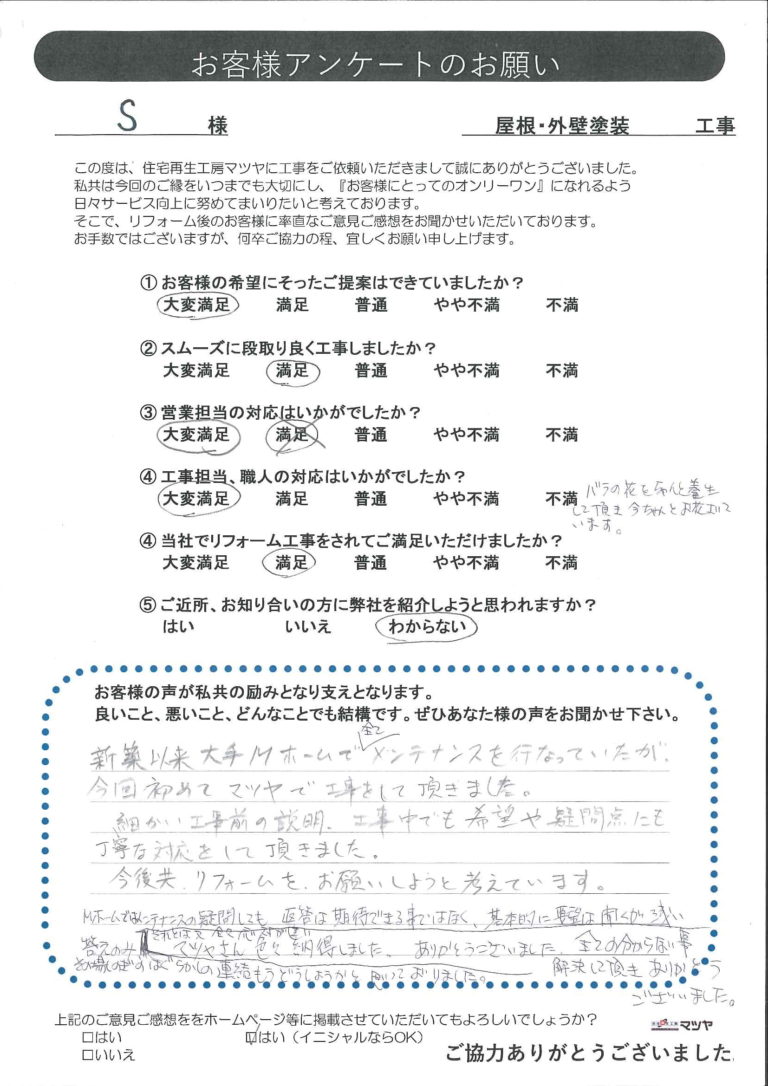 お客様アンケートのお願い
S 様 屋根・外壁塗装 工事
この度は、住宅再生工房マツヤに工事をご依頼いただきまして誠にありがとうございました。
私共は今回のご縁をいつまでも大切にし、『お客様にとってのオンリーワン』になれるよう
日々サービス向上に努めてまいりたいと考えております。
そこで、リフォーム後のお客様に率直なご意見ご感想をお聞かせいただいております。
お手数ではございますが、何卒ご協力の程、宜しくお願い申し上げます。
①お客様の希望にそったご提案はできていましたか？
大変満足 満足 普通 やや不満 不満
②スムーズに段取り良く工事しましたか？
大変満足 満足 普通 やや不満 不満
③営業担当の対応はいかがでしたか？
大変満足 満足 普通 やや不満 不満
④工事担当、職人の対応はいかがでしたか？
大変満足 満足 普通 やや不満 不満
バラの花をちゃんと養生
して頂き今ちゃんとお花
います。
④当社でリフォーム工事をされてご満足いただけましたか？
大変満足 満足 普通 やや不満 不満
⑤ご近所、お知り合いの方に弊社を紹介しようと思われますか？
はい いいえ わからない
お客様の声が私共の励みとなり支えとなります。
良いこと、悪いこと、どんなことでも結構です。ぜひあなた様の声をお聞かせ下さい。
全て
新築以来大手Mホームでメンテナンスを行なっていたが、
今回初めてマツヤで工事をして頂きました。
細かい工事前の説明、工事中でも希望や疑問点にも
丁寧な対応をして頂きました。
今後共、リフォームを、お願いしようと考えています。
Mホームではメンテナンスの疑問しても 返答は期待できる事ではなく、基本的に要望は聞くが
答えのみ マツヤさん 色々納得しました、ありがとうございました、全ての分からない事
連絡もうどうしようかと思っておりました。 解決して頂きありがとう
ございました。
上記のご意見ご感想ををホームページ等に掲載させていただいてもよろしいでしょうか？
□はい ☑はい（イニシャルならOK）
□いいえ
マツヤ
ご協力ありがとうございました